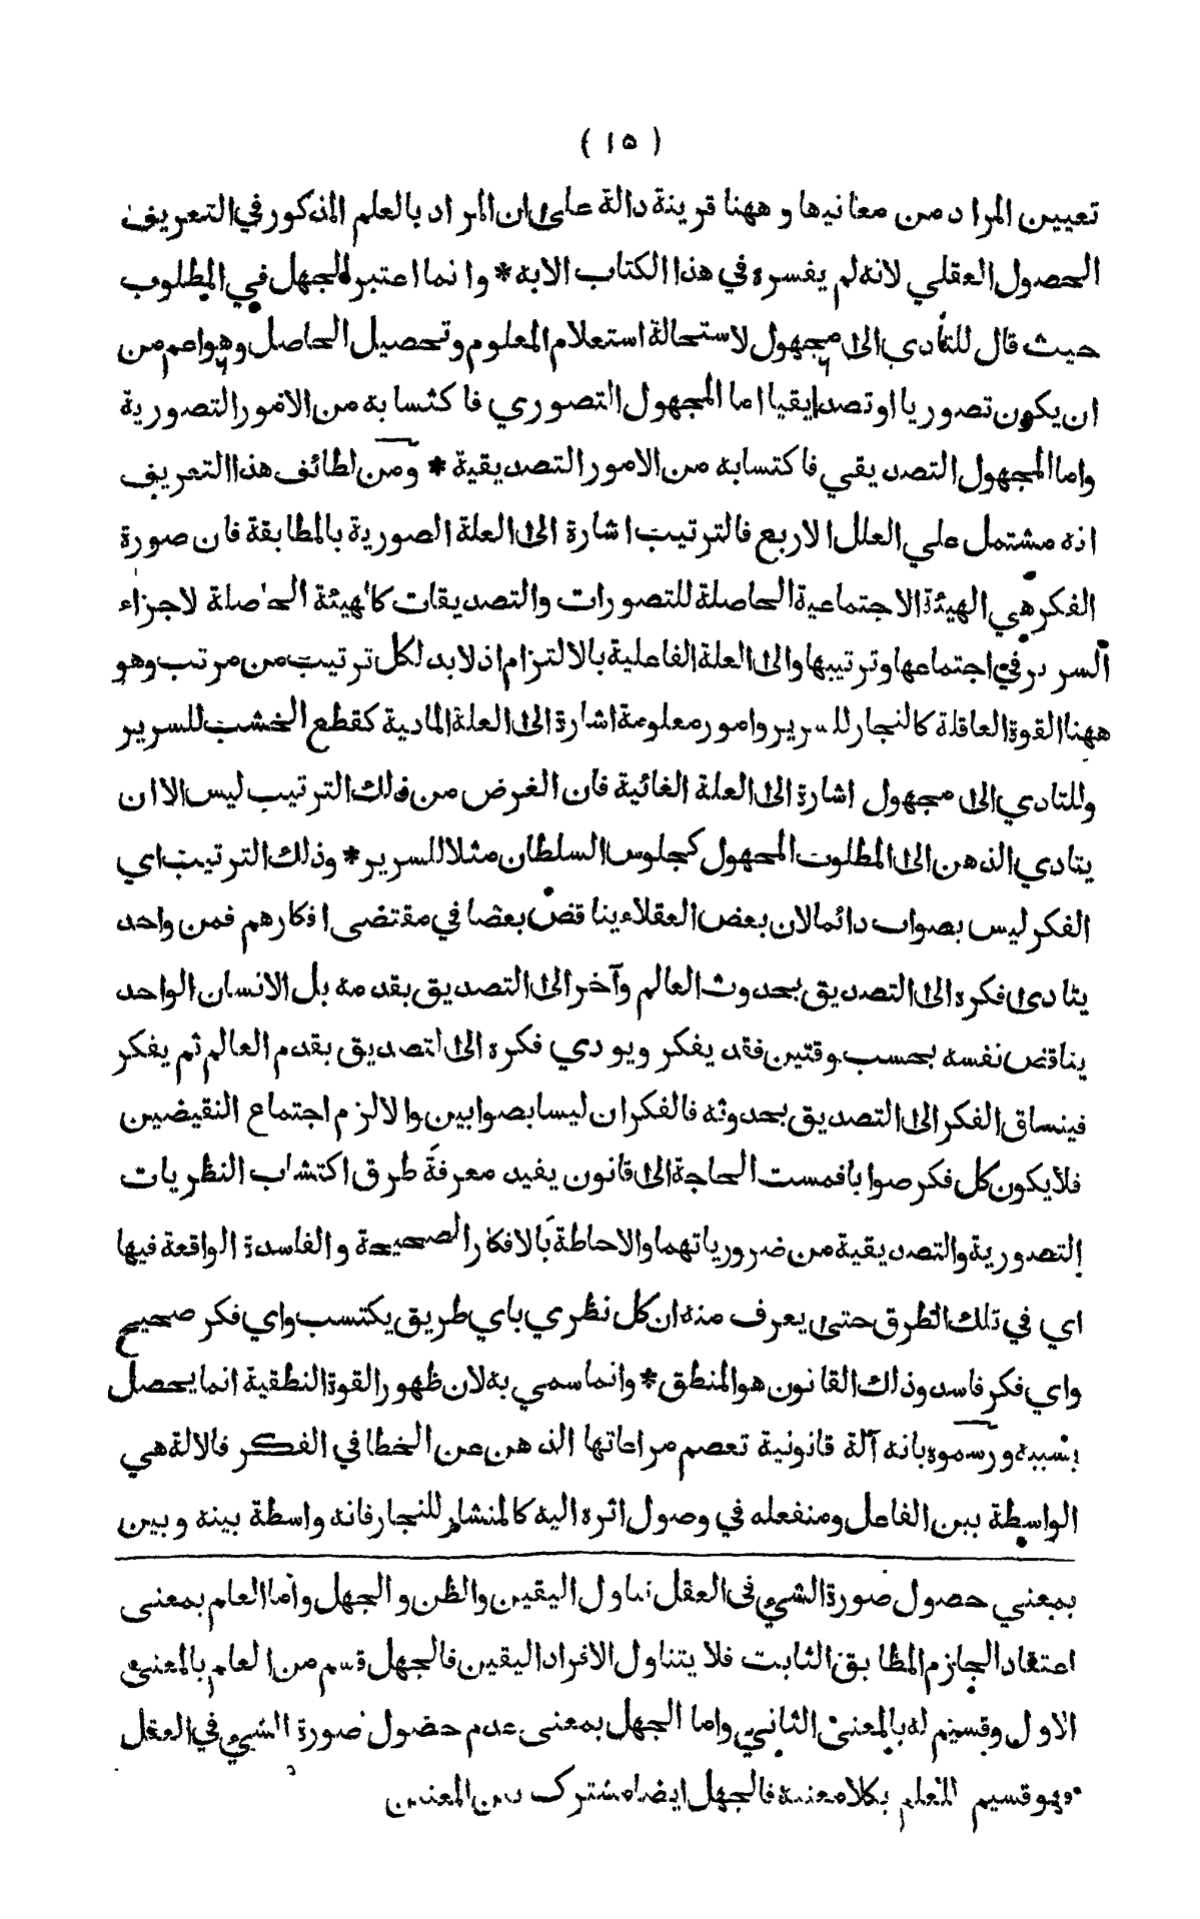 ( ١٥ )
تعيين المراد من معانيها وههنا قرينة دالة على ان المراد بالعلم المذكور في التعريف
الحصول العقلي لانه لم يفسره في هذا الكتاب الا به * وانما اعتبر الجهل في المطلوب
حيث قال للتأدي الى مجهول لاستحالة استعلام المعلوم وتحصيل الحاصل وهو اعم من
ان يكون تصوريا او تصديقيا اما المجهول التصوري فاكتسابه من الامور التصورية
واما المجهول التصديقي فاكتسابه من الامور التصديقية * ومن لطائف هذا التعريف
انه مشتمل علي العلل الاربع فالترتيب اشارة الى العلة الصورية بالمطابقة فان صورة
الفكر هي الهيئة الاجتماعية الحاصلة للتصورات والتصديقات كالهيئة الحاصلة لاجزاء
السرير في اجتماعها وترتيبها والى العلة الفاعلية بالالتزام اذ لابد لكل ترتيب من مرتب وهو
ههنا القوة العاقلة كالنجار للسرير وامور معلومة اشارة الى العلة المادية كقطع الخشب للسرير
وللتادي الى مجهول اشارة الى العلة الغائية فان الغرض من ذلك الترتيب ليس الا ان
يتادي الذهن الى المطلوب المجهول كجلوس السلطان مثلا للسرير * وذلك الترتيب اي
الفكر ليس بصواب دائما لان بعض العقلاء يناقض بعضا في مقتضى افكارهم فمن واحد
يتادى فكره الى التصديق بحدوث العالم وآخر الى التصديق بقدمه بل الانسان الواحد
يناقض نفسه بحسب وقتين فقد يفكر ويودي فكره الى التصديق بقدم العالم ثم يفكر
فينساق الفكر الى التصديق بحدوثه فالفكران ليسا بصوابين والا لزم اجتماع النقيضين
فلا يكون كل فكر صوابا فمست الحاجة الى قانون يفيد معرفة طرق اكتساب النظريات
التصورية والتصديقية من ضرورياتهما والاحاطة بالافكار الصحيحة والفاسدة الواقعة فيها
اي في تلك الطرق حتى يعرف منه ان كل نظري باي طريق يكتسب واي فكر صحيح
واي فكر فاسد وذلك القانون هو المنطق * وانما سمي به لان ظهور القوة النطقية انما يحصل
بسببه ورسموه بانه آلة قانونية تعصم مراعاتها الذهن عن الخطا في الفكر فالالة هي
الواسطة بين الفاعل ومنفعله في وصول اثره اليه كالمنشار للنجار فانه واسطة بينه وبين
بمعني حصول صورة الشيء في العقل تناول اليقين والظن والجهل واما العام بمعنى
اعتقاد الجازم المطابق الثابت فلا يتناول الافراد اليقين فالجهل قسم من العلم بالمعنى
الاول وقسيم له بالمعنى الثاني واما الجهل بمعنى عدم حضول صورة الشيء في العقل
فهو قسيم للعلم بكلا معنييه فالجهل ايضا مشترك بين المعنيين